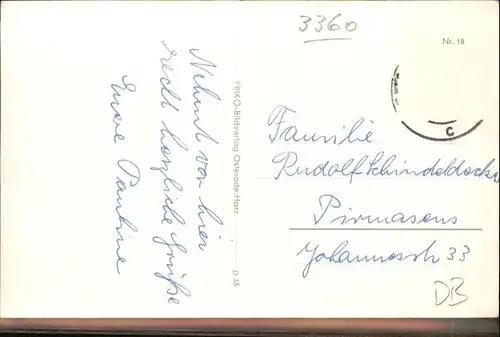 3360
Nr. 18
Nehmt von hier
recht herzliche Grüße
Eure Pauline
FRIKO-Bildverlag Osterode/Harz
D 35
C
Familie
Rudolf Schindeldecker
Pirmasens
Johannesstr 33
DB